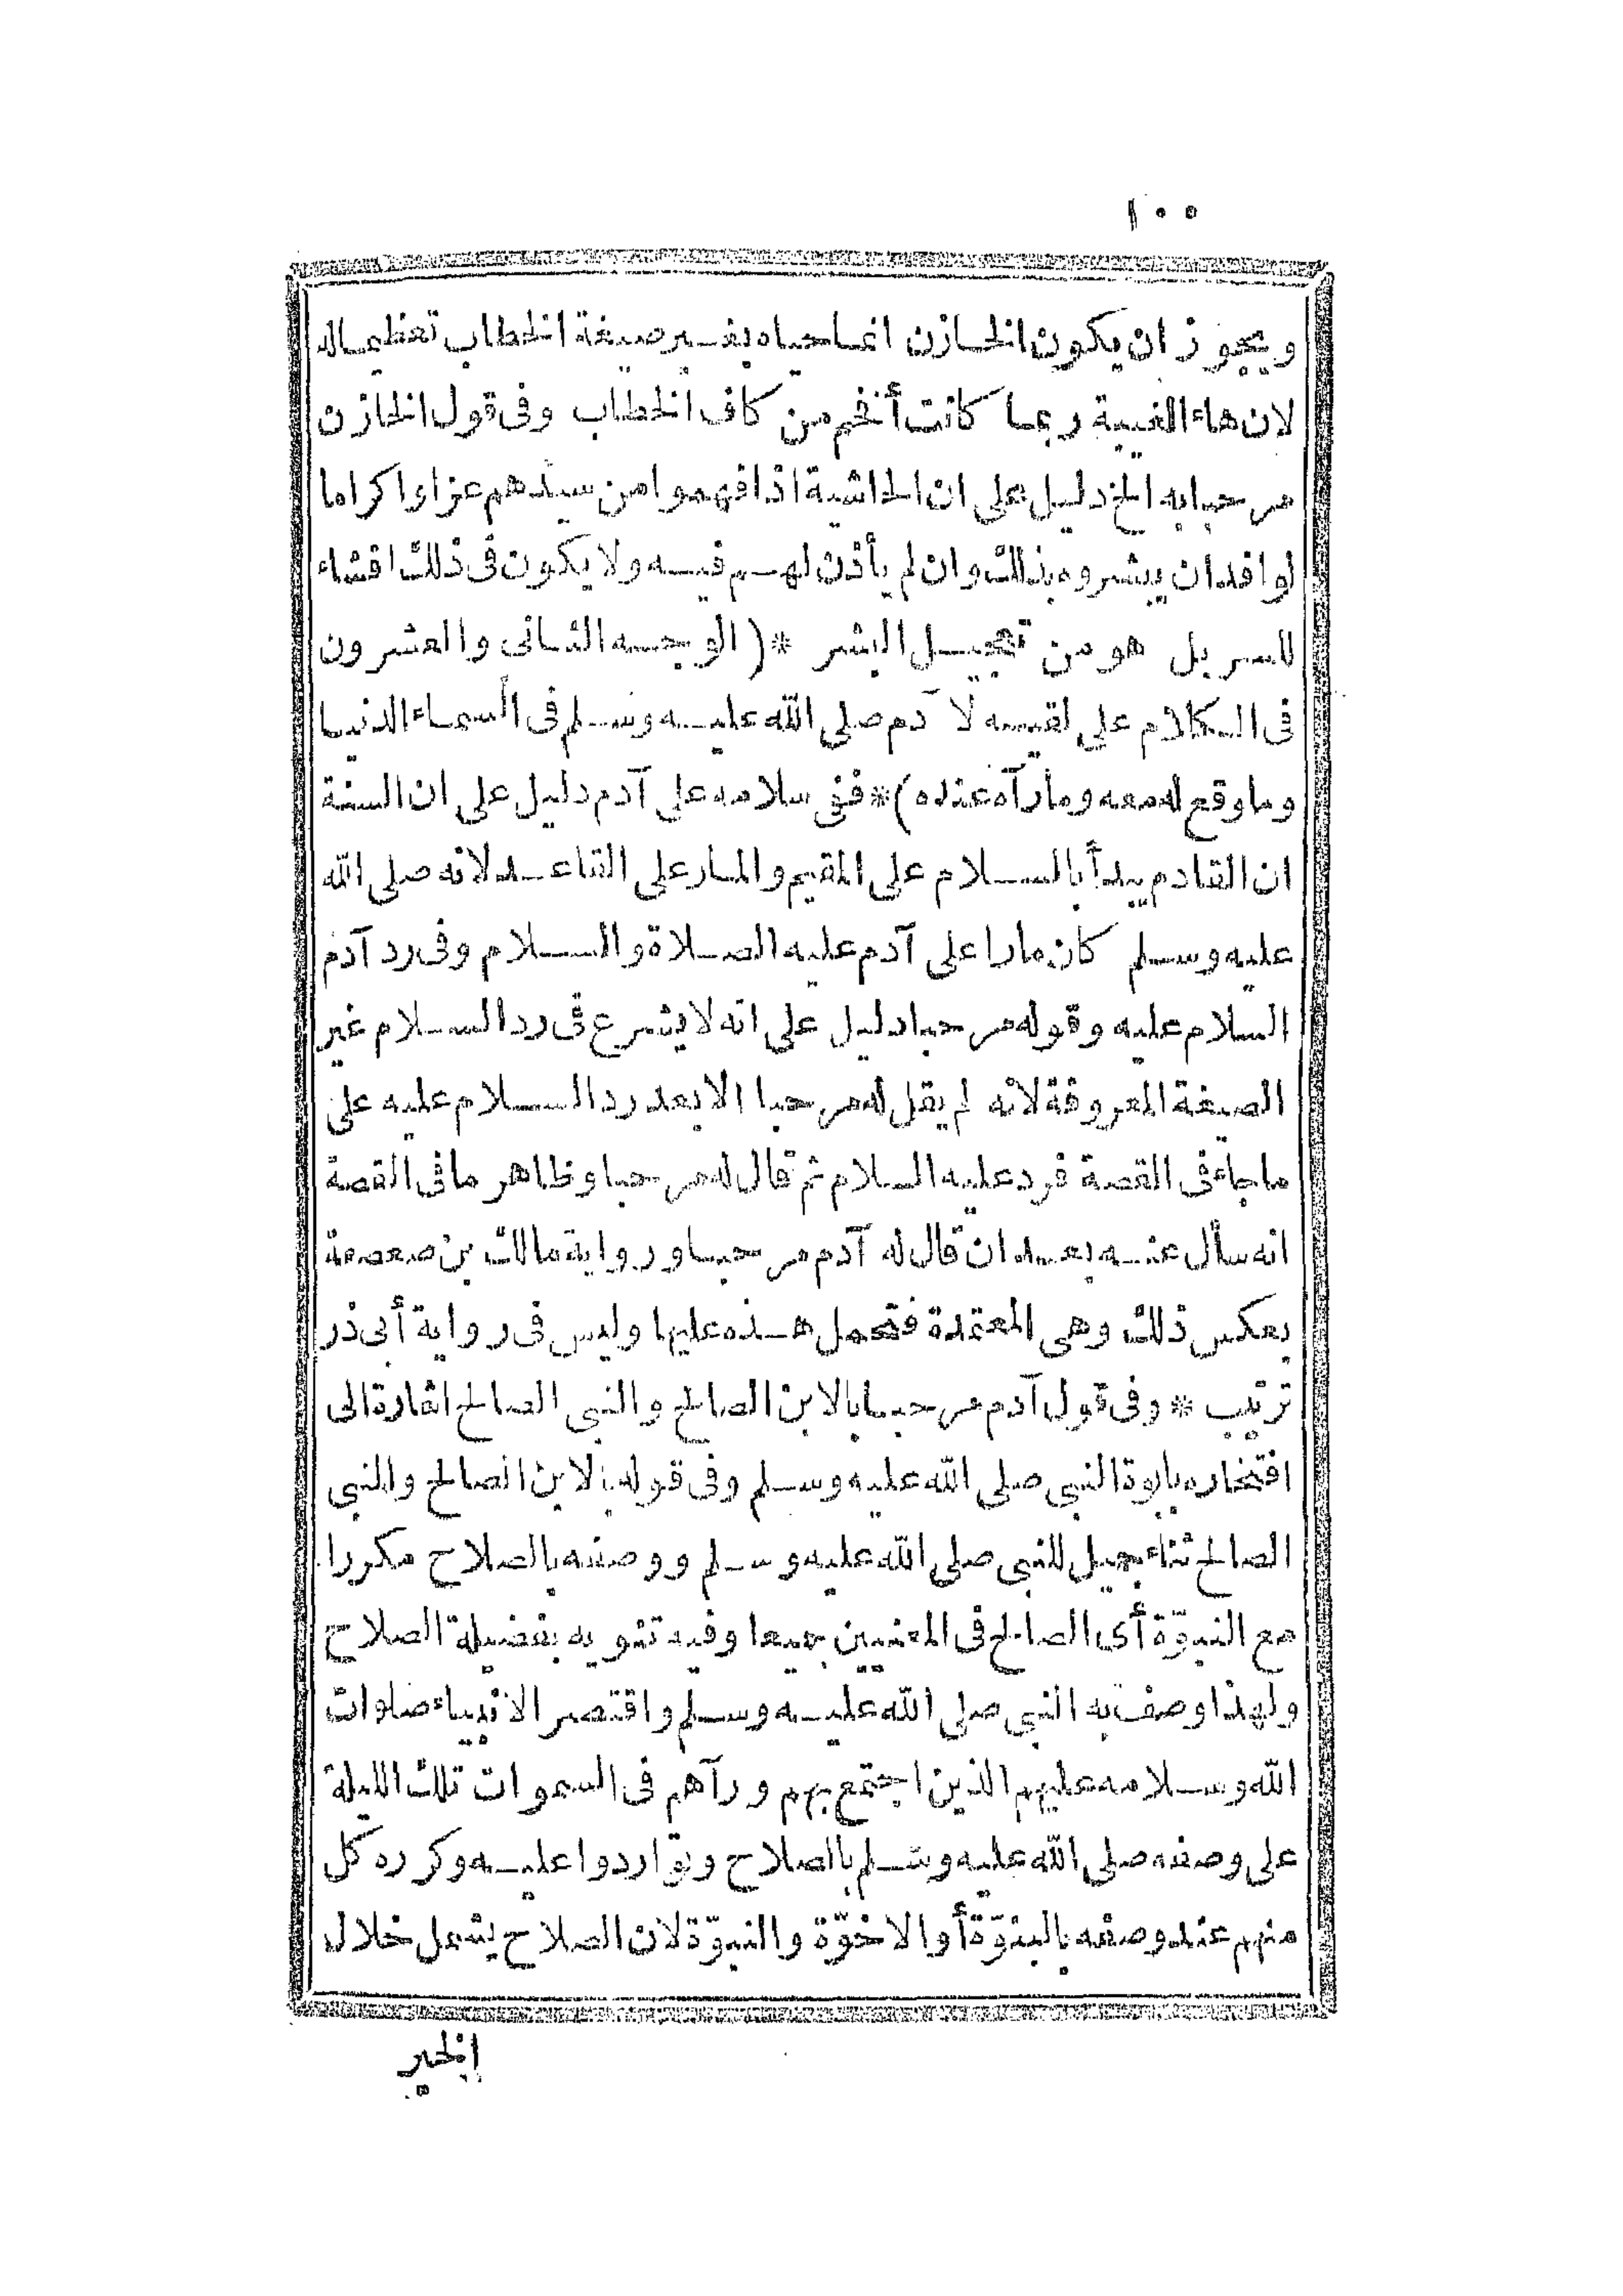 ١٠٠
ويجوز ان يكون الخازن انما حياه بغير صيغة الخطاب تعظيما له
لان هاء الغيبة ربما كانت أفخم من كاف الخطاب وفى قول الخازن
مرحبا به الخ دليل على ان الحاشية اذا فهموا من سيدهم عزا واكراما
لوافد ان يبشروه بذلك وان لم يأذن لهم فيه ولا يكون فى ذلك افشاء
لاسر بل هو من تعجيل البشر *(الوجه الثانى والعشرون
فى الكلام على لقيه لآدم صلى الله عليه وسلم فى السماء الدنيا
وما وقع له معه وما رآه عنده)* ففى سلامه على آدم دليل على ان السنة
ان القادم يبدأ بالسلام على المقيم والمار على القاعد لانه صلى الله
عليه وسلم كان مارا على آدم عليه الصلاة والسلام وفى رد آدم
السلام عليه وقوله مرحبا دليل على انه لا يشرع فى رد السلام غير
الصيغة المعروفة لانه لم يقل له مرحبا الا بعد رد السلام عليه على
ما جاء فى القصة فرد عليه السلام ثم قال له مرحبا وظاهر ما فى القصة
انه سأل عنه بعد ان قال له آدم مرحبا ورواية مالك بن صعصعة
بعكس ذلك وهى المعتمدة فتحمل هذه عليها وليس فى رواية أبى ذر
ترتيب * وفى قول آدم مرحبا بالابن الصالح والنبى الصالح اشارة الى
افتخاره بابوة النبى صلى الله عليه وسلم وفى قوله بالابن الصالح والنبى
الصالح ثناء جميل للنبى صلى الله عليه وسلم ووصفه بالصلاح مكررا
مع النبوّة أى الصالح فى المعنيين جميعا وفيه تنويه بفضيلة الصلاح
ولهذا وصف به النبى صلى الله عليه وسلم واقتصر الانبياء صلوات
الله وسلامه عليهم الذين اجتمع بهم ورآهم فى السموات تلك الليلة
على وصفه صلى الله عليه وسلم بالصلاح وتواردوا عليه وكرره كل
منهم عند وصفه بالبنوّة أو الاخوّة والنبوّة لان الصلاح يشمل خلال
الخير